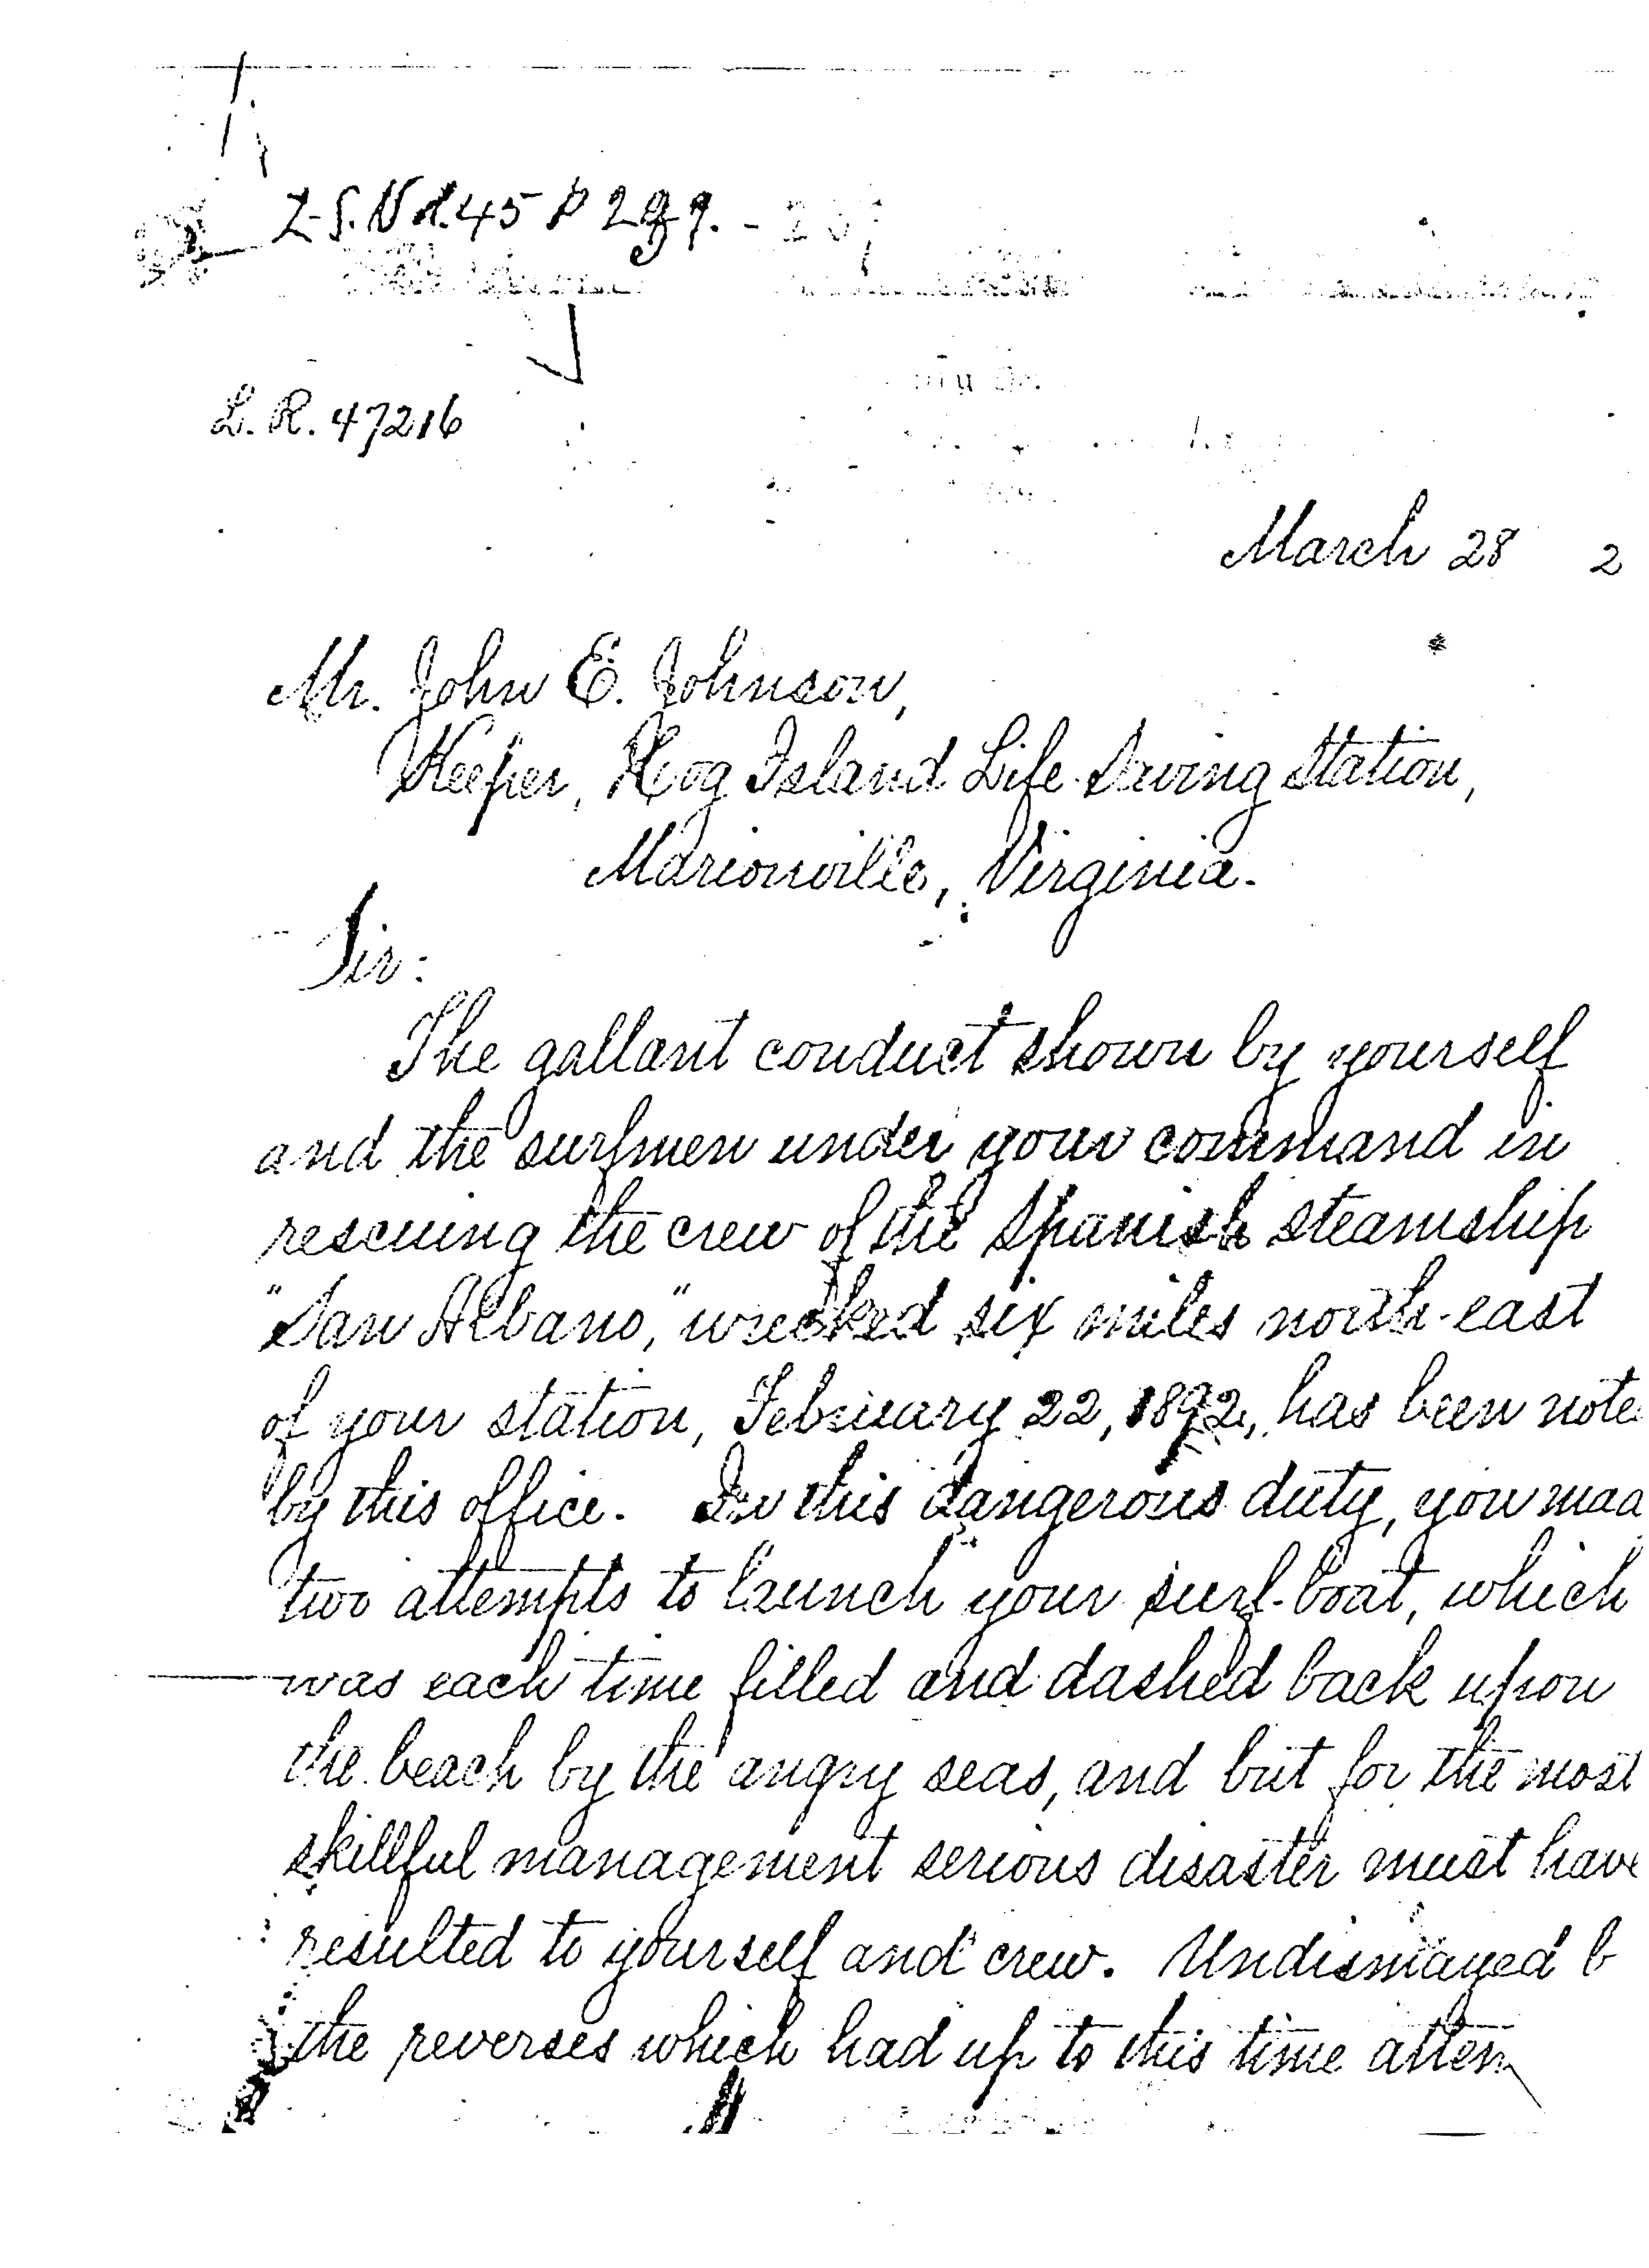 L. R. 47216
March 28 2
Mr. John E. Johnson,
Keeper, Hog Island Life-Saving Station,
Marionville, Virginia.
Sir:
The gallant conduct shown by yourself
and the surfmen under your command in
rescuing the crew of the Spanish steamship
"San Albano," wrecked six miles north-east
of your station, February 22, 1892, has been note
by this office. In this dangerous duty, you mad
two attempts to launch your surf-boat, which
was each time filled and dashed back upon
the beach by the angry seas, and but for the most
skillful management serious disaster must have
resulted to yourself and crew. Undismayed b
the reverses which had up to this time atten